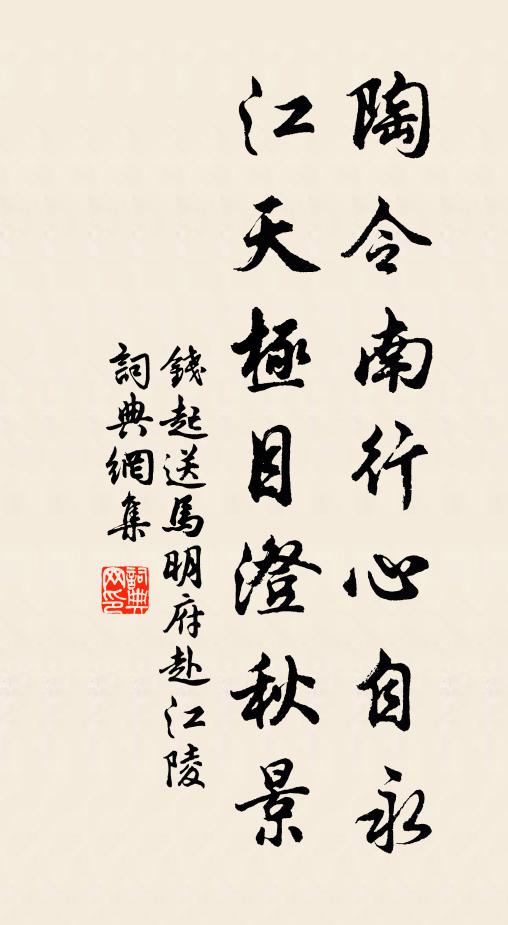 陶令南行心自永
江天極目澄秋景
錢起送馬明府赴江陵
詞典網集
詞典网印